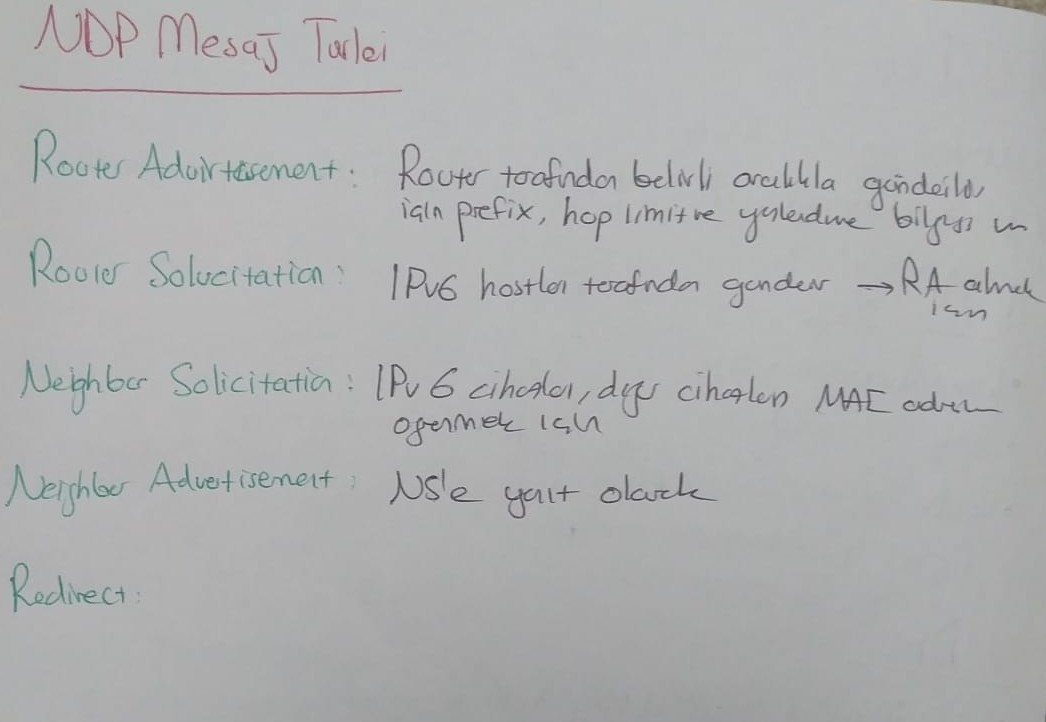 NDP Mesaj Turlei
Router Advirtesement : Router terafından belirli aralıkla gönderilir
için prefix, hop limit ve yönlendirme bilgisi
Router Solucitation : IPv6 hostlar terafından gönderir → RA almak
için
Neighbor Solicitation : IPv6 cihazları, diğer cihazların MAC adresini
ögermek için
Neighbor Advertisement : NS'e yanıt olarak
Redirect :